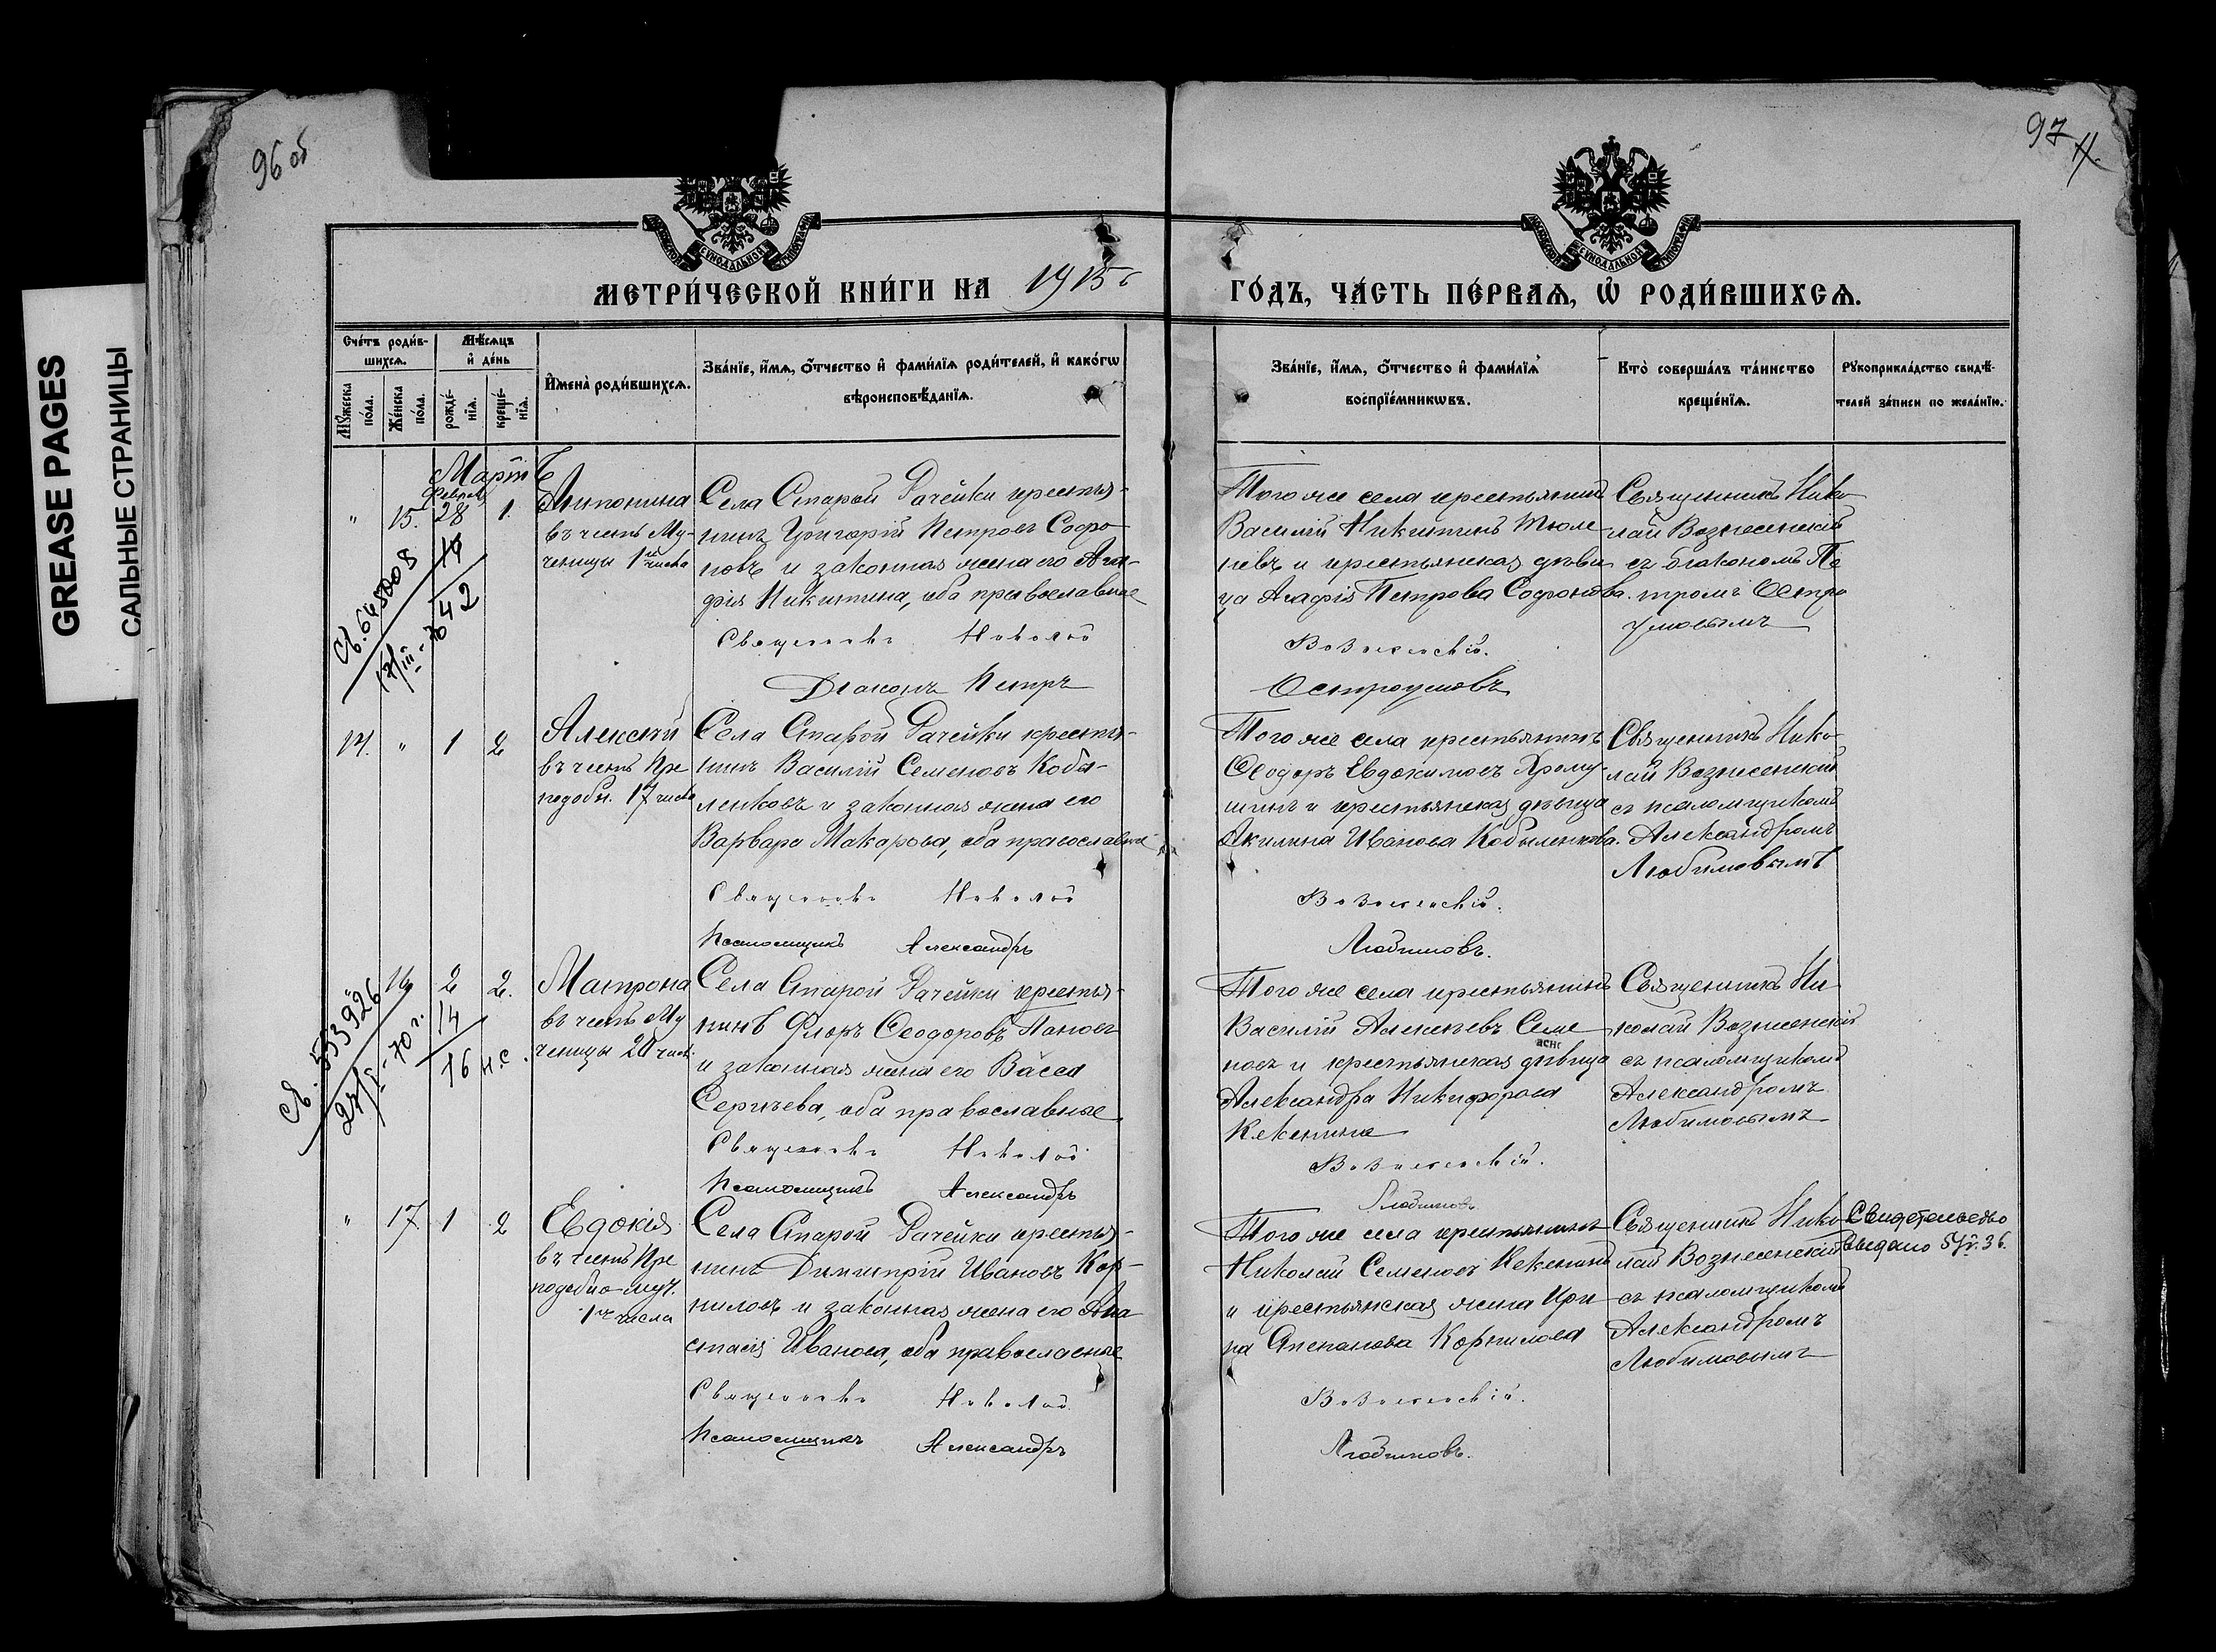 GREASE PAGES
САЛЬНЫЕ СТРАНИЦЫ
96 об
97
МЕТРИ́ЧЕСКОЙ КНИ́ГИ НА 1915 г
ГО́ДЪ, ЧА́СТЬ ПЕ́РВАѦ, Ѡ҆ РОДИ́ВШИХСѦ.
Сче́тъ роди́в-
шихсѧ.
Мꙋ́жеска по́ла.
Же́нска по́ла.
Мѣ́сѧцъ
и҆ де́нь
рожде́-
нїѧ.
креще́-
нїѧ.
И҆мена̀ роди́вшихсѧ.
Зва́нїе, и҆́мѧ, ѻ҆́тчество и҆ фами́лїѧ роди́телей, и҆ како́гѡ
вѣроисповѣ́данїѧ.
Зва́нїе, и҆́мѧ, ѻ҆́тчество и҆ фами́лїѧ
воспрїе́мникѡвъ.
Кто̀ соверша́лъ та́инство
креще́нїѧ.
Рꙋкоприкла́дство свидѣ́-
телей за́писи по жела́нїю.
Мартъ
" 15. Феврал. 28 1.
14
42
Св. 645008
Антонина
въ честь Му-
ченицы 1го числа
Села Старой Рачейки крестья-
нинъ Григорій Петровъ Софро-
новъ и законная жена его Ага-
фія Никитина, оба православные
Священникъ Николай
Діаконъ Петръ
Того же села крестьянинъ
Василій Никитинъ Тюле-
невъ и крестьянская дѣви-
ца Агафія Петрова Софронова.
Вознесенскій.
Остроумовъ
Священникъ Нико-
лай Вознесенскій
съ діакономъ Пе-
тромъ Остро
умовымъ
14. " 1 2
Алексій
въ честь Пре
подобн. 17 числа
Села Старой Рачейки крестья-
нинъ Василій Семеновъ Кобы-
ленковъ и законная жена его
Варвара Макарова, оба православные
Священникъ Николай
Псаломщикъ Александръ
Того же села крестьянинъ
Ѳеодоръ Евдокимовъ Хрому-
шинъ и крестьянская дѣвица
Акилина Иванова Кобыленкова.
Вознесенскій.
Любимовъ.
Священникъ Нико-
лай Вознесенскій
съ псаломщикомъ
Александромъ
Любимовымъ
" 16 2 2.
14
16 н.с.
Св. 533926
27/I-70 г.
Матрона
въ честь Му
ченицы 20 числ.
Села Старой Рачейки крестья-
нинъ Флоръ Ѳеодоровъ Пановъ
и законная жена его Васса
Сергѣева, оба православные
Священникъ Николай
Псаломщикъ Александръ
Того же села крестьянинъ
Василій Алексѣевъ Семе
новъ и крестьянская дѣвица
Александра Никифорова
Кекенина
Вознесенскій.
Любимовъ
Священникъ Ни-
колай Вознесенскій
съ псаломщикомъ
Александромъ
Любимовымъ
" 17. 1 2
Евдокія
въ честь Пре
подобно-муч.
1го числа
Села Старой Рачейки крестья-
нинъ Димитрій Ивановъ Кор-
ниловъ и законная жена его Ана
стасія Иванова, оба православные
Священникъ Николай
Псаломщикъ Александръ
Того же села крестьянинъ
Николай Семеновъ Кекенинъ
и крестьянская жена Ири-
на Степанова Корнилова
Вознесенскій.
Любимовъ.
Священникъ Нико
лай Вознесенскій
съ псаломщикомъ
Александромъ
Любимовымъ
Свидетельство